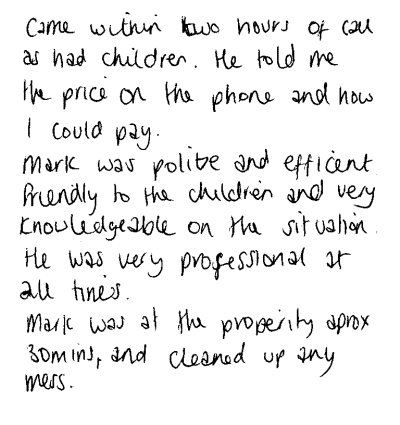 Came within two hours of call
as had children. He told me
the price on the phone and how
I could pay.
Mark was polite and efficent
friendly to the children and very
knowledgeable on the situation.
He was very professional at
all times.
Mark was at the properity aprox
30mins, and cleaned up any
mess.